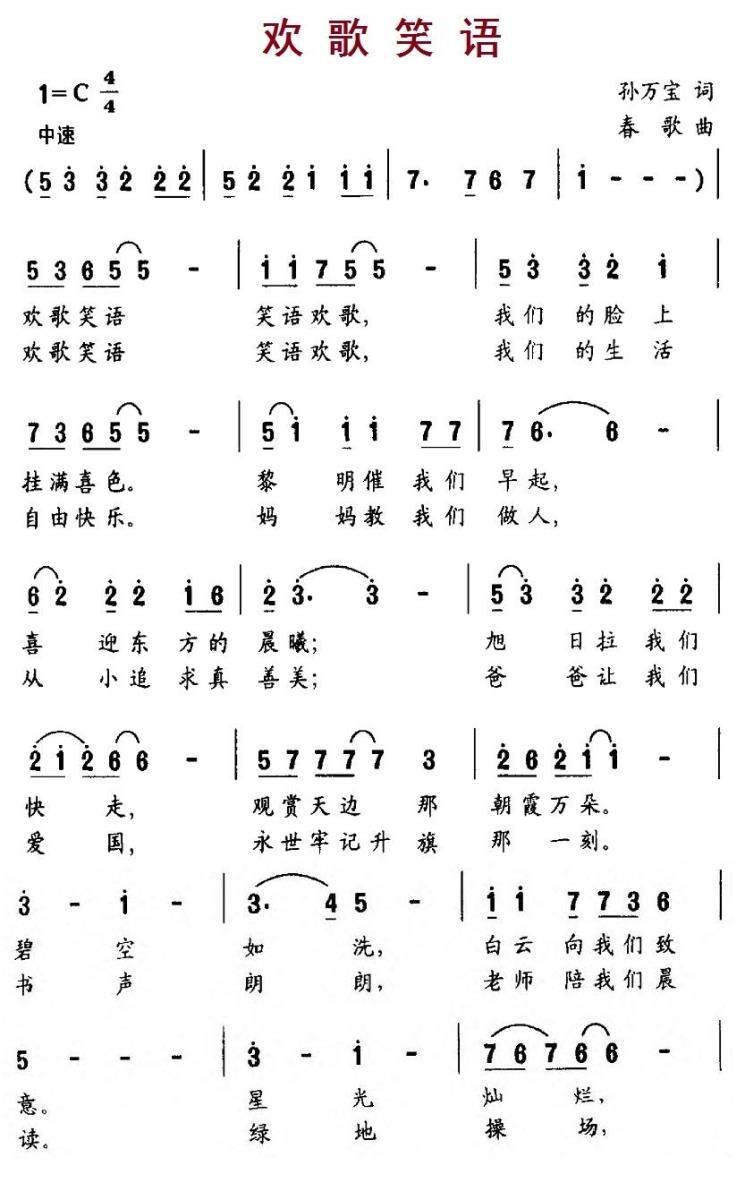 欢歌笑语
1=C 4/4
孙万宝 词
中速
春歌 曲
(5 3 3 2 2 2 | 5 2 2 1 1 1 | 7. 7 6 7 | 1 - - - ) |
5 3 6 5 5 - | 1 1 7 5 5 - | 5 3 3 2 1 |
欢歌笑语 笑语欢歌, 我们的脸上
欢歌笑语 笑语欢歌, 我们的生活
7 3 6 5 5 - | 5 1 1 1 7 7 | 7 6. 6 - |
挂满喜色。 黎明催我们早起,
自由快乐。 妈妈教我们做人,
6 2 2 2 1 6 | 2 3. 3 - | 5 3 3 2 2 2 |
喜迎东方的晨曦; 旭日拉我们
从小追求真善美; 爸爸让我们
2 1 2 6 6 - | 5 7 7 7 7 3 | 2 6 2 1 1 - |
快走, 观赏天边那朝霞万朵。
爱国, 永世牢记升旗那一刻。
3 - 1 - | 3. 4 5 - | 1 1 7 7 3 6 |
碧空如洗, 白云向我们致
书声朗朗, 老师陪我们晨
5 - - - | 3 - 1 - | 7 6 7 6 6 - |
意。 星光灿烂,
读。 绿地操场,